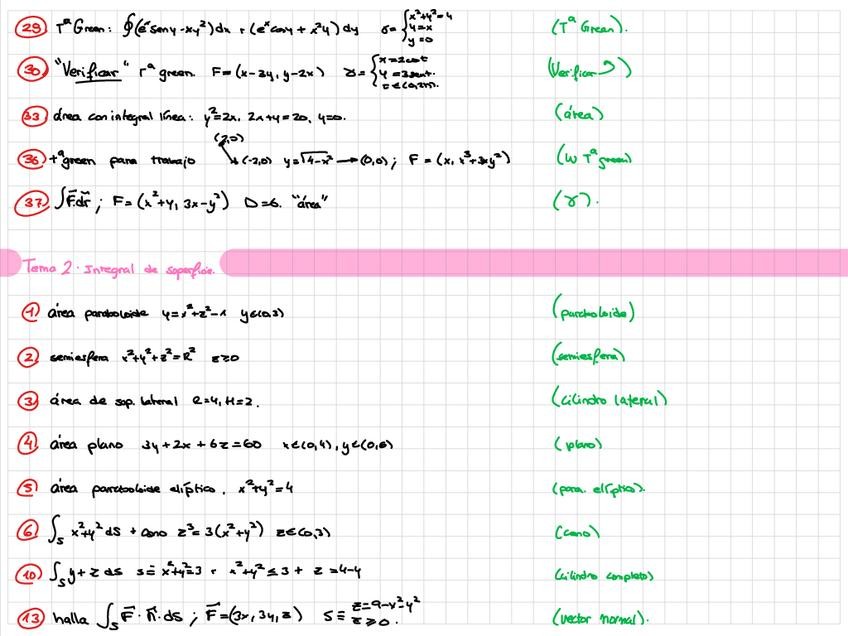 29 Tª Green: ∮(eˣ sen y - xy²) dx + (eˣ cos y + x²y) dy σ= { x²+y²=4 y=x y=0 (Tª Green).
30 "Verificar" Tª green. F=(x-3y, y-2x) γ= { x=2cost y=3sent. t∈(0,2π). (Verificar)
33 área con integral línea: y²=2x, 2x+y=20, y=0. (área)
36 tª green para trabajo (2,0) → (-2,0) y=√4-x² → (0,0); F=(x, x³+3xy²) (W Tª green)
37 ∫F⃗·dr⃗; F=(x²+y, 3x-y²) D=6. "área" (γ).
Tema 2. Integral de superficie.
1 área paraboloide y=x²+z²-1 y∈(0,3) (paraboloide)
2 semiesfera x²+y²+z²=R² z≥0 (semiesfera)
3 área de sup. lateral R=4, H=2. (cilindro lateral)
4 área plano 3y+2x+6z=60 x∈(0,4), y∈(0,6) (plano)
5 área paraboloide elíptico. x²+y²=4 (para. elíptico).
6 ∫s x²+y² ds + cono z²=3(x²+y²) z∈(0,3) (cono)
10 ∫s y+z ds S≡ x²+y²=3 + x²+y²≤3 + z=4-y (cilindro completo)
13 halla ∫s F⃗·n⃗·ds; F⃗=(3x, 3y, z) S≡ z=9-x²-y² z≥0. (vector normal).